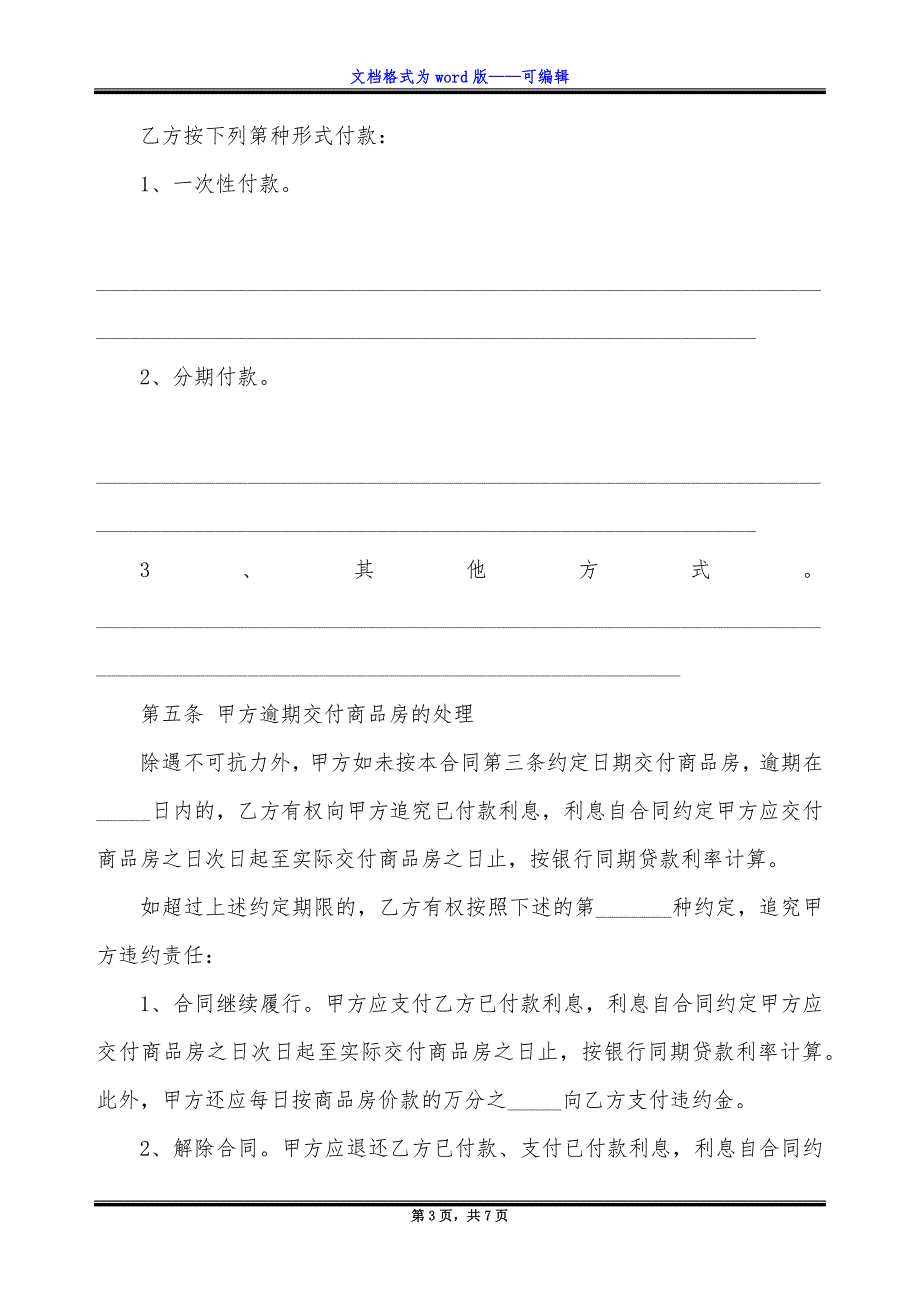 文档格式为 word 版——可编辑
乙方按下列第种形式付款：
1、一次性付款。
___________________________________________________________________
_____________________________________________________________
2、分期付款。
___________________________________________________________________
_____________________________________________________________
3、其他方式。
___________________________________________________________________
______________________________________________________
第五条 甲方逾期交付商品房的处理
除遇不可抗力外，甲方如未按本合同第三条约定日期交付商品房，逾期在
_____日内的，乙方有权向甲方追究已付款利息，利息自合同约定甲方应交付
商品房之日次日起至实际交付商品房之日止，按银行同期贷款利率计算。
如超过上述约定期限的，乙方有权按照下述的第_______种约定，追究甲
方违约责任：
1、合同继续履行。甲方应支付乙方已付款利息，利息自合同约定甲方应
交付商品房之日次日起至实际交付商品房之日止，按银行同期贷款利率计算。
此外，甲方还应每日按商品房价款的万分之_____向乙方支付违约金。
2、解除合同。甲方应退还乙方已付款、支付已付款利息，利息自合同约
第 3 页，共 7 页